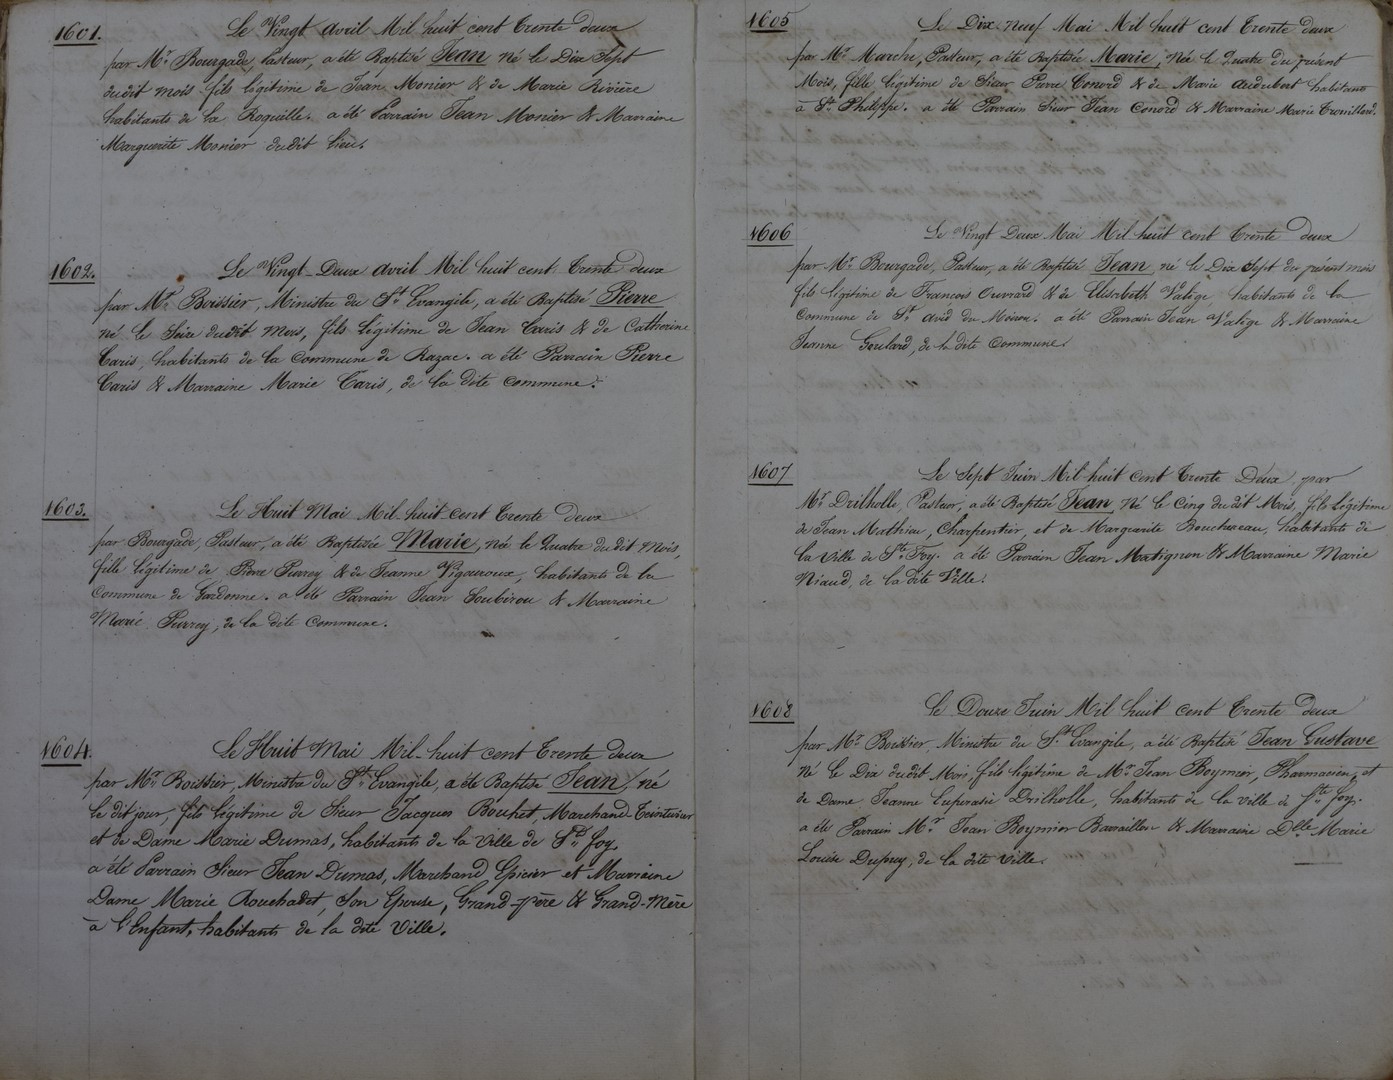 1601.
Le Vingt avril Mil huit cent Trente deux
par Mr. Bourgade, Pasteur, a été Baptisé Jean né le Dix Sept
dudit mois, fils légitime de Jean Monier & de Marie Rivière
habitants de la Roquille. a été Parrain Jean Monier & Marraine
Marguerite Monier dudit lieu.
1602.
Le Vingt-Deux avril Mil huit cent Trente deux
par Mr. Boissier, Ministre du St. Evangile, a été Baptisé Pierre
né le Seize dudit Mois, fils légitime de Jean Caris & de Catherine
Caris, habitants de la Commune de Razac. a été Parrain Pierre
Caris & Marraine Marie Caris, de la dite commune.
1603.
Le Huit Mai Mil-huit-cent Trente deux
par Bourgade, Pasteur, a été Baptisée Marie, née le Quatre dudit Mois,
fille légitime de Pierre Perrey & de Jeanne Vigouroux, habitants de la
Commune de Gardonne. a été Parrain Jean Soubirou & Marraine
Marie Perrey, de la dite Commune.
1604.
Le Huit Mai Mil-huit cent Trente deux
par Mr. Boissier, Ministre du St. Evangile, a été Baptisé Jean, né
le dit jour, fils légitime de Sieur Jacques Bouhet, Marchand Teinturier
et de Dame Marie Dumas, habitants de la Ville de Ste. foy.
a été Parrain Sieur Jean Dumas, Marchand Epicier et Marraine
Dame Marie Rouchadet, Son Epouse, Grand-père & Grand-Mère
à l'Enfant, habitants de la dite Ville.
1605
Le Dix-neuf Mai Mil huit cent Trente deux
par Mr. Marche, Pasteur, a été Baptisée Marie, née le Quatre du présent
Mois, fille légitime de Sieur Pierre Conord & de Marie Audubert habitants
à St. Philippe. a été Parrain Sieur Jean Conord & Marraine Marie Trouillard.
1606
Le Vingt Deux Mai Mil-huit cent Trente deux
par Mr. Bourgade, Pasteur, a été Baptisé Jean, né le Dix Sept du présent mois
fils légitime de François Ouvrard & de Elisabeth Valège, habitants de la
Commune de St. avid du Moiron. a été Parrain Jean Valège & Marraine
Jeanne Goulard, de la dite Commune.
1607
Le Sept Juin Mil-huit cent Trente Deux, par
Mr. Drilholle, Pasteur, a été Baptisé Jean né le Cinq dudit Mois, fils légitime
de Jean Mathiau, Charpentier, et de Marguerite Bouchereau, habitants de
la Ville de Ste. Foy. a été Parrain Jean Matignon & Marraine Marie
Niaud, de la dite Ville.
1608
Le Douze Juin Mil huit cent Trente deux
par Mr. Boissier Ministre du St. Evangile, a été Baptisé Jean Gustave
né le Dix dudit Mois, fils légitime de Mr. Jean Boymier, Pharmacien, et
de Dame Jeanne Euphrasie Drilholle, habitants de la Ville de Ste. foy.
a été Parrain Mr. Jean Boymier Barraillon & Marraine Dlle. Marie
Louise Dupuy, de la dite Ville.